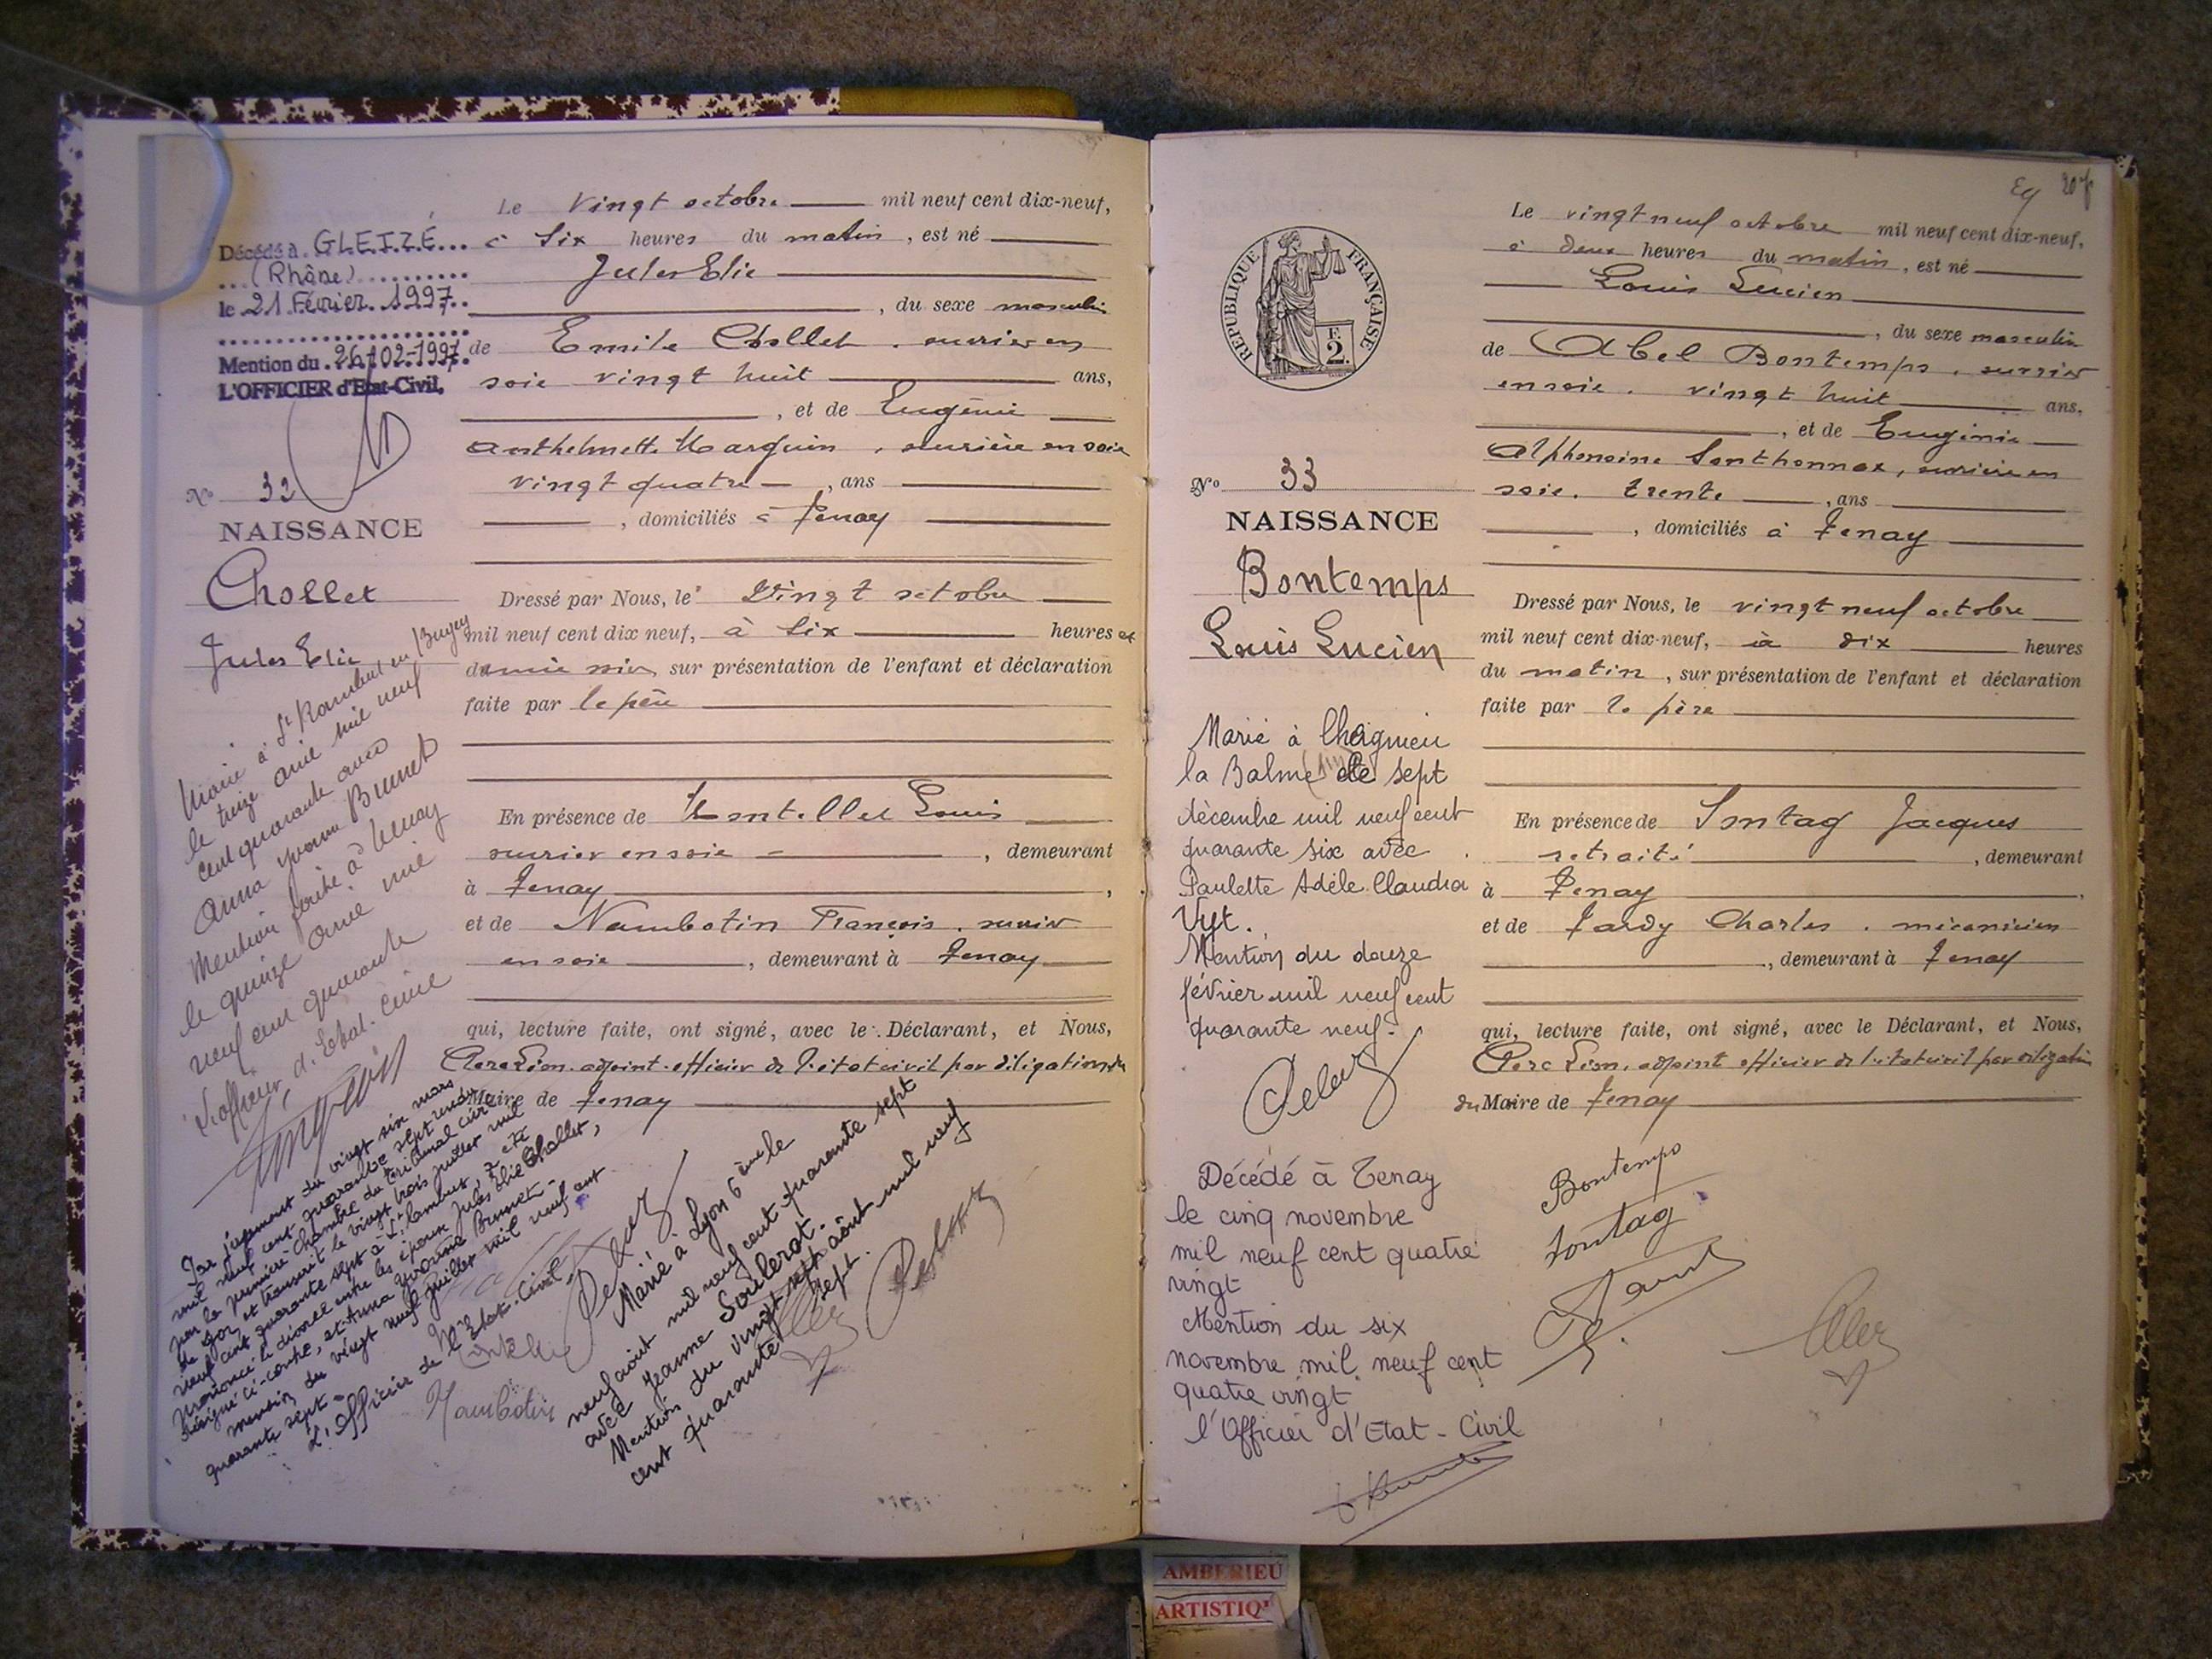 Décédé à GLEIZÉ...
(Rhône)
le 21 Février 1997
Mention du 26.02.1997.
L'OFFICIER d'Etat-Civil,
No 32
NAISSANCE
Chollet
Jules Elie
Marié à St Rambert en Bugey
le treize avril mil neuf
cent quarante avec
Anna Yvonne Brunet
Mention faite à Tenay
le quinze avril mil
neuf cent quarante
L'officier d. Etat. Civil
Le vingt octobre mil neuf cent dix-neuf,
à six heures du matin, est né
Jules Elie
, du sexe masculin
de Emile Chollet, ouvrier en
soie vingt huit ans,
, et de Eugénie
Anthelmette Marguin, ouvrière en soie
vingt quatre , ans
, domiciliés à Tenay
Dressé par Nous, le vingt octobre
mil neuf cent dix neuf, à six heures et
demie soir, sur présentation de l'enfant et déclaration
faite par le père
En présence de Montillet Louis
ouvrier en soie , demeurant
à Tenay ,
et de Nambotin François, ouvrier
en soie , demeurant à Tenay
qui, lecture faite, ont signé, avec le Déclarant, et Nous,
Clerc Léon, adjoint officier de l'état civil par délégation du
Maire de Tenay
Par jugement du vingt six mars
mil neuf cent quarante sept rendu
par la première Chambre du tribunal civil
de et transcrit le vingt trois juillet mil
neuf cent quarante sept à St Rambert, a été
prononcé le divorce entre les époux Jules Elie Chollet,
désigné ci-contre, et Anna Yvonne Brunet.
Mention du vingt neuf juillet mil neuf cent
quarante sept
L'Officier de l'Etat-Civil
Nambotin
Marié à Lyon 6ème le
neuf août mil neuf cent quarante sept
avec Jeanne Soulerot.
Mention du vingt sept août mil neuf
cent quarante sept.
207
REPUBLIQUE FRANÇAISE
2.
No 33
NAISSANCE
Bontemps
Louis Lucien
Marié à Cheignieu
la Balme (Ain) le sept
décembre mil neuf cent
quarante six avec
Paulette Adèle Claudia
Vyt.
Mention du douze
février mil neuf cent
quarante neuf.
Décédé à Tenay
le cinq novembre
mil neuf cent quatre
vingt
Mention du six
novembre mil neuf cent
quatre vingt
l'Officier d'Etat-Civil
Le vingt neuf octobre mil neuf cent dix-neuf,
à deux heures du matin, est né
Louis Lucien
, du sexe masculin
de Abel Bontemps, ouvrier
en soie. vingt huit ans,
, et de Eugénie
Alphonsine Santhonnax, ouvrière en
soie. trente , ans
, domiciliés à Tenay
Dressé par Nous, le vingt neuf octobre
mil neuf cent dix-neuf, à dix heures
du matin, sur présentation de l'enfant et déclaration
faite par le père
En présence de Sontag Jacques
retraité , demeurant
à Tenay ,
et de Tardy Charles. mécanicien
, demeurant à Tenay
qui, lecture faite, ont signé, avec le Déclarant, et Nous,
Clerc Léon, adjoint officier de l'état civil par délégation
du Maire de Tenay
Bontemps
Sontag
AMBERIEU
ARTISTIQ